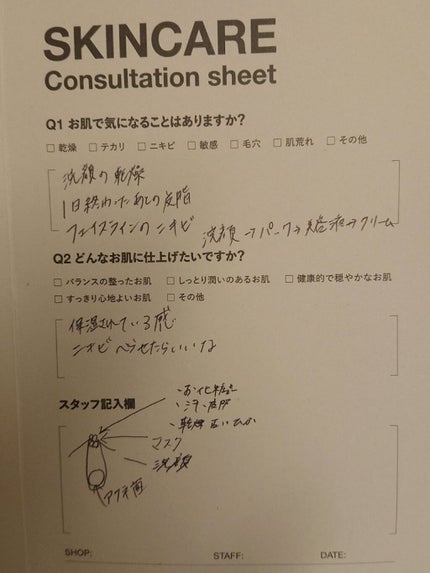 SKINCARE
Consultation sheet
Q1 お肌で気になることはありますか?
□ 乾燥 □ テカリ □ ニキビ □ 敏感 □ 毛穴 □ 肌荒れ □ その他
洗顔の乾燥
1日終わったあとの皮脂
フェイスラインのニキビ
洗顔→パック→美容液→クリーム
Q2 どんなお肌に仕上げたいですか?
□ バランスの整ったお肌 □ しっとり潤いのあるお肌 □ 健康的で穏やかなお肌
□ すっきり心地よいお肌 □ その他
保湿されている感
ニキビ へらせたらいいな
スタッフ記入欄
・お化粧
・汗、皮脂
・乾燥
マスク
洗顔
アクネ菌
SHOP: STAFF: DATE: